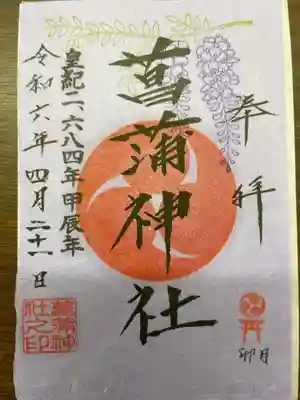 奉拝
卯月
菖蒲神社
皇紀二、六八四年甲辰年
令和六年四月二十一日
菖蒲神
社之印